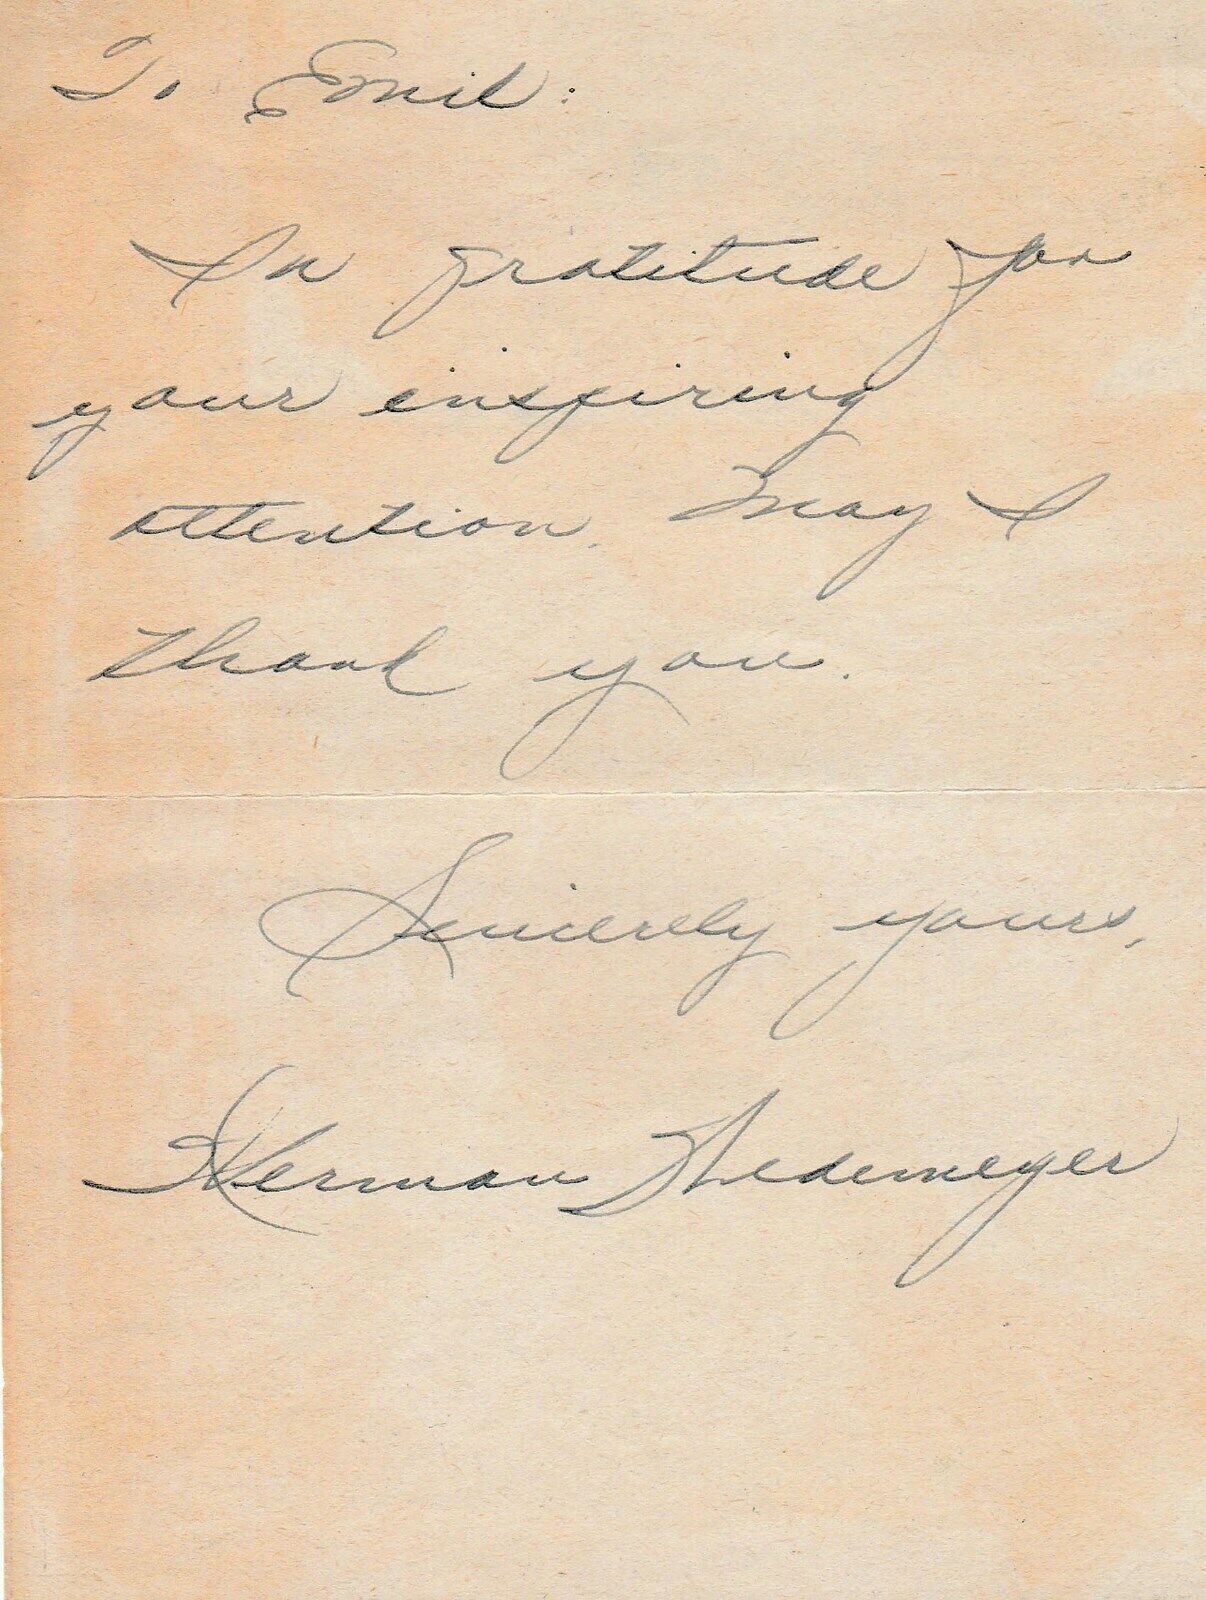 To Emil:
In gratitude for
your inspiring
attention. May I
thank you.
Sincerely yours,
Herman Wedemeyer